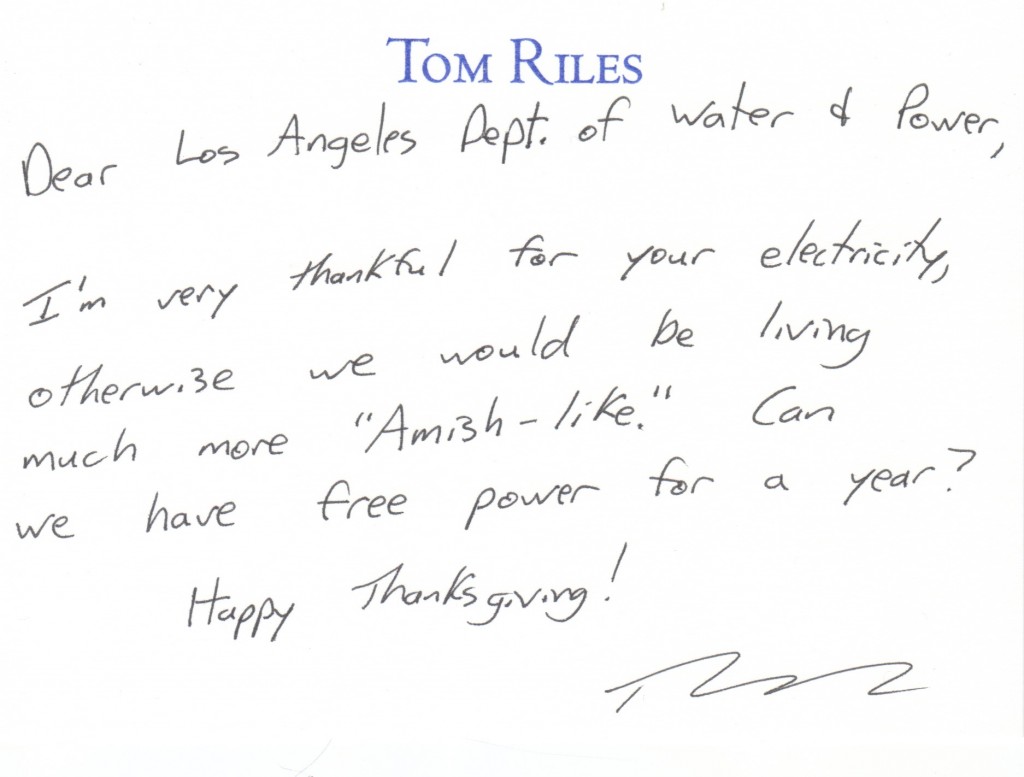 TOM RILES
Dear Los Angeles Dept. of Water & Power,
I'm very thankful for your electricity,
otherwise we would be living
much more "Amish-like." Can
we have free power for a year?
Happy Thanksgiving!